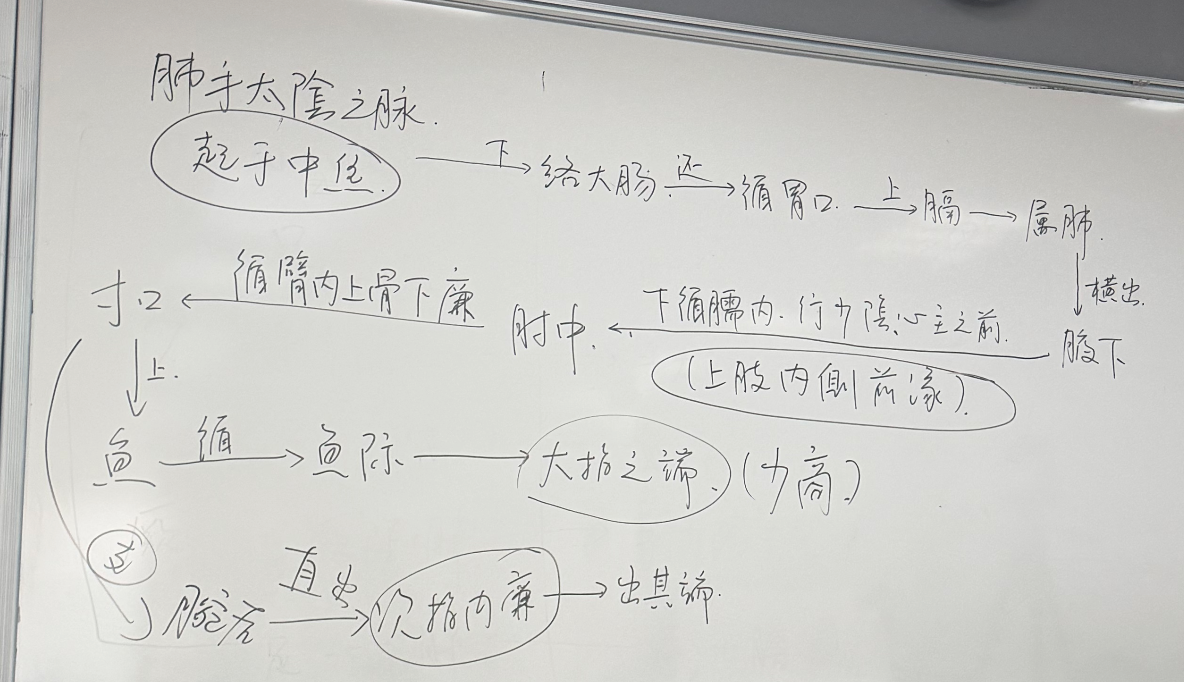 肺手太陰之脉.
起于中焦. 下→ 络大肠. 还→ 循胃口. 上→ 膈 → 属肺.
↓横出.
腋下
下循臑内. 行少陰心主之前.
(上肢内側前缘).
肘中.
循臂内上骨下廉
寸口
↓上.
鱼 循→ 鱼际 → 大指之端. (少商)
支
腕后 直出→ 次指内廉 → 出其端.